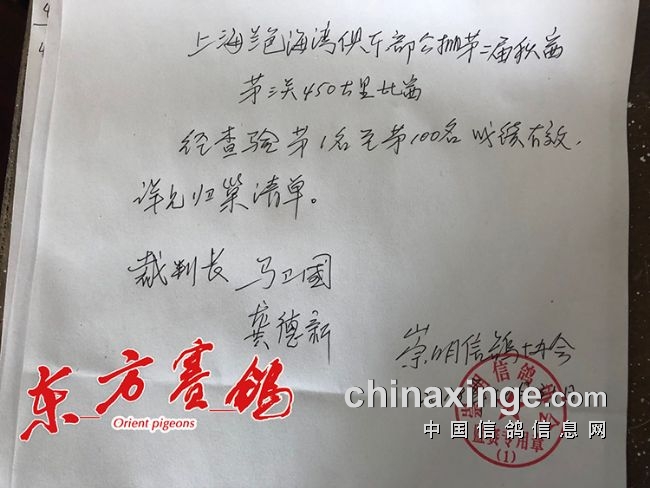 上海兰色海湾俱乐部公棚第二届秋赛
第三关450公里比赛
经查验第1名至第100名成绩有效.
详见归巢清单。
裁判长 马卫国
龚德新
崇明信鸽协会
信鸽协会
专用章
(1)
东方赛鸽
Orient pigeons
chinaxinge.com
中国信鸽信息网